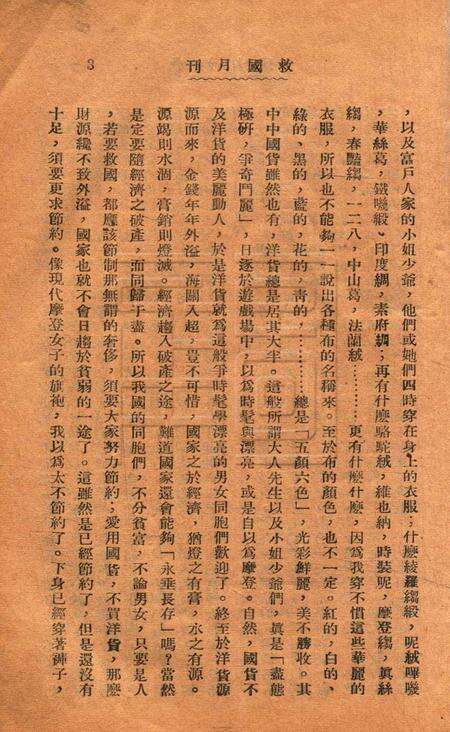 救國月刊
3
，以及富戶人家的小姐少爺，他們或她們四時穿在身上的衣服；什麼綾羅縐緞，呢絨嗶嘰
，華絲葛，鐵機緞、印度綢，素府綢；再有什麼駱駝絨，維也納，時裝呢，摩登縐，眞絲
縐，春豔縐，一二八，中山葛，法蘭絨…………更有什麼什麼，因爲我穿不慣這些華麗的
衣服，所以也不能夠一一說出各種布的名稱來。至於布的顏色，也不一定。紅的，白的、
綠的、黑的，藍的，花的，青的，…………總是「五顏六色」，光彩鮮麗，美不勝收。其
中中國貨雖然也有，洋貨總是居其大半。這般所謂大人先生以及小姐少爺們，眞是「盡態
極研，爭奇鬥麗」，日逐於遊戲場中，以爲時髦與漂亮，或是自以爲摩登。自然，國貨不
及洋貨的美麗動人，於是洋貨就爲這般爭時髦學漂亮的男女同胞們歡迎了。終至於洋貨源
源而來，金錢年年外溢，海關入超，豈不可惜，國家之於經濟，猶燈之有膏，水之有源。
源竭則水涸，膏銷則燈滅。經濟趨入破產之途，難道國家還會能夠「永垂長存」嗎？當然
是定要隨經濟之破產，而同歸于盡。所以我國的同胞們，不分貧富，不論男女，只要是人
，若要救國，都應該節制那無謂的奢侈，須要大家努力節約，愛用國貨，不買洋貨，那麼
財源纔不致外溢，國家也就不會日趨於貧弱的一途了。這雖然是已經節約了，但是還沒有
十足，須要更求節約。像現代摩登女子的旗袍，我以爲太不節約了。下身已經穿著褲子，